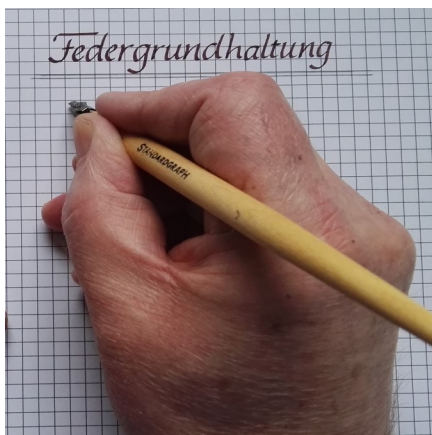 Federgrundhaltung
STANDARDGRAPH